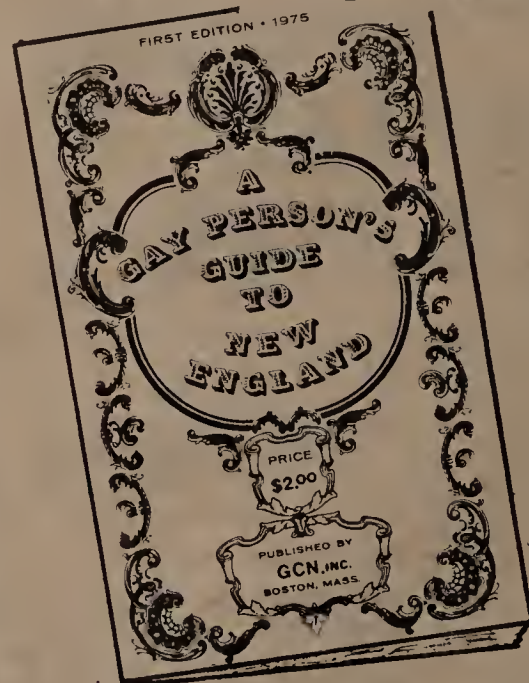 FIRST EDITION • 1975
A
GAY PERSON'S
GUIDE
TO
NEW
ENGLAND
PRICE
$2.00
PUBLISHED BY
GCN, INC.
BOSTON, MASS.